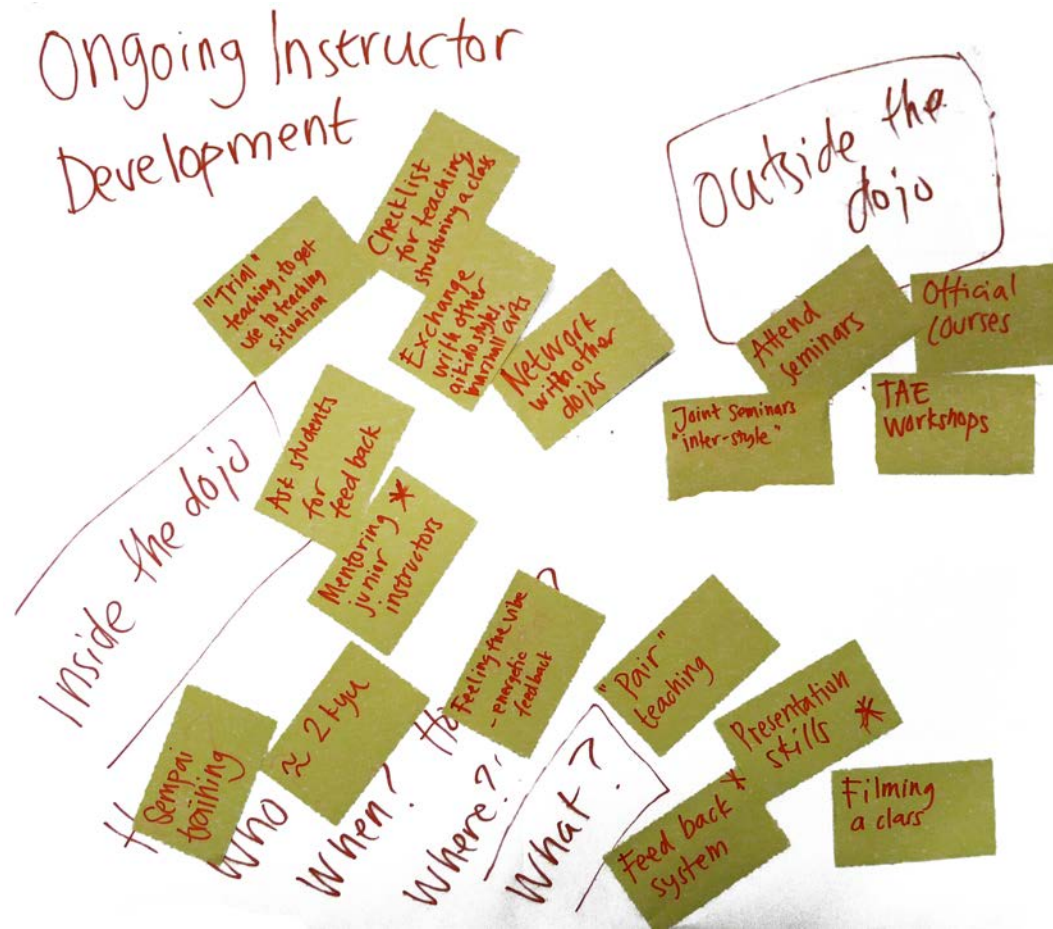 Ongoing Instructor
Development
Outside the
dojo
"Trial"
teaching, to get
use to teaching
situation
Checklist
for teaching,
structuring a class
Exchange
with other
aikido styles,
Network
with other
dojos
Attend
seminars
Official
courses
Joint Seminars
"inter-style"
TAE
Workshops
Inside the dojo
Ask students
for
feedback
Mentoring *
junior
instructors
Feeling the vibe
- energetic
feedback
"Pair"
teaching
Presentation
skills *
Feed back *
system
Filming
a class
Sempai
training
≈ 2 kyu
Who
When?
Where?
What?